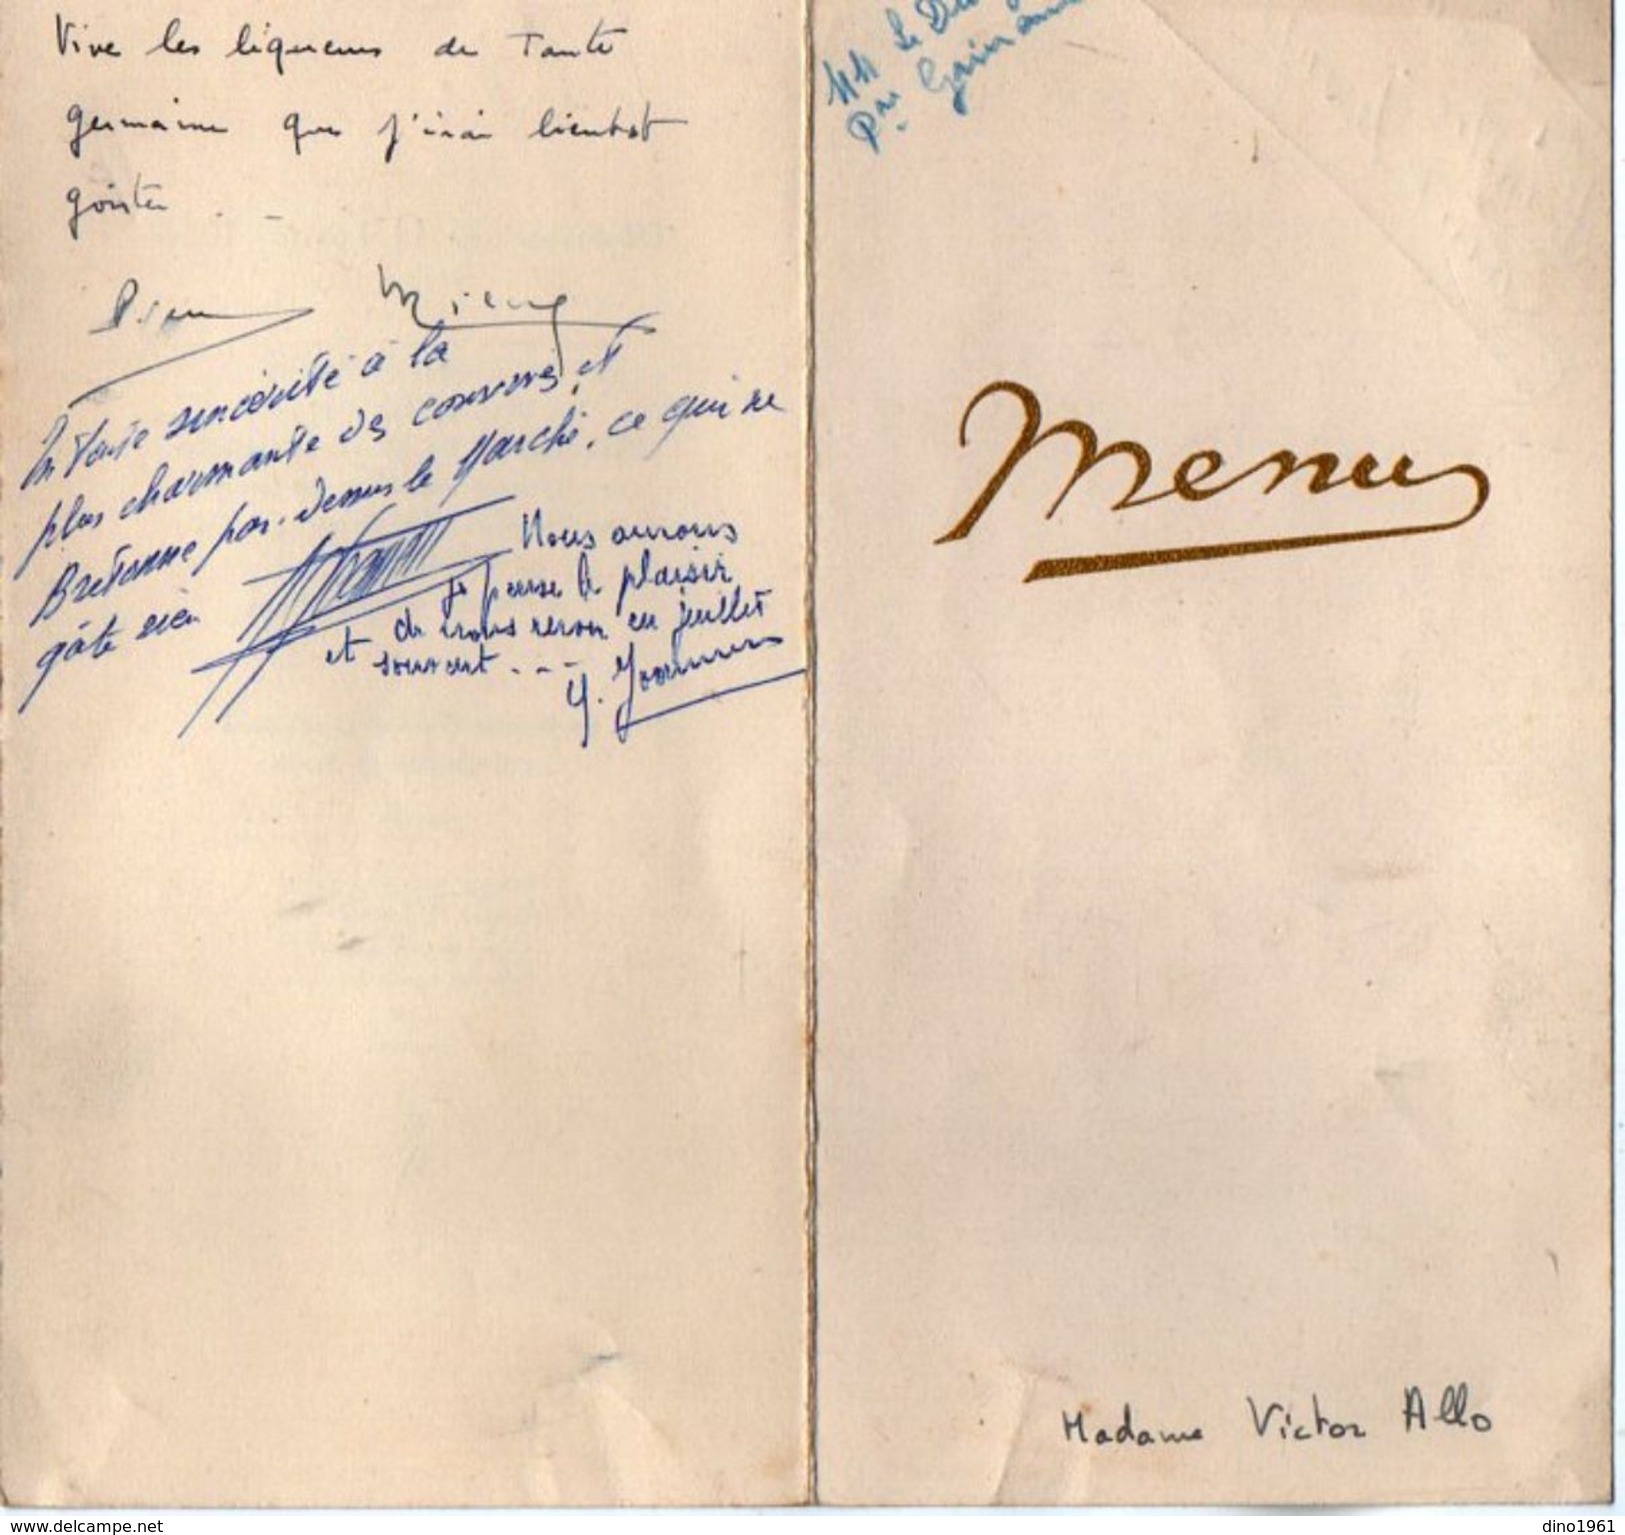 Vive les liqueurs de Tante
germaine que j'irai bientot
goûter . -
En toute sincérité à la
plus charmante des convives, et
Bretonne par-dessus le Marché, ce qui ne
gâte rien
Nous aurons
je pense le plaisir
de vous revoir en juillet
et souvent - - -
Y.
MM Le
Menu
Madame Victor Allo
www.delcampe.net
dino1961